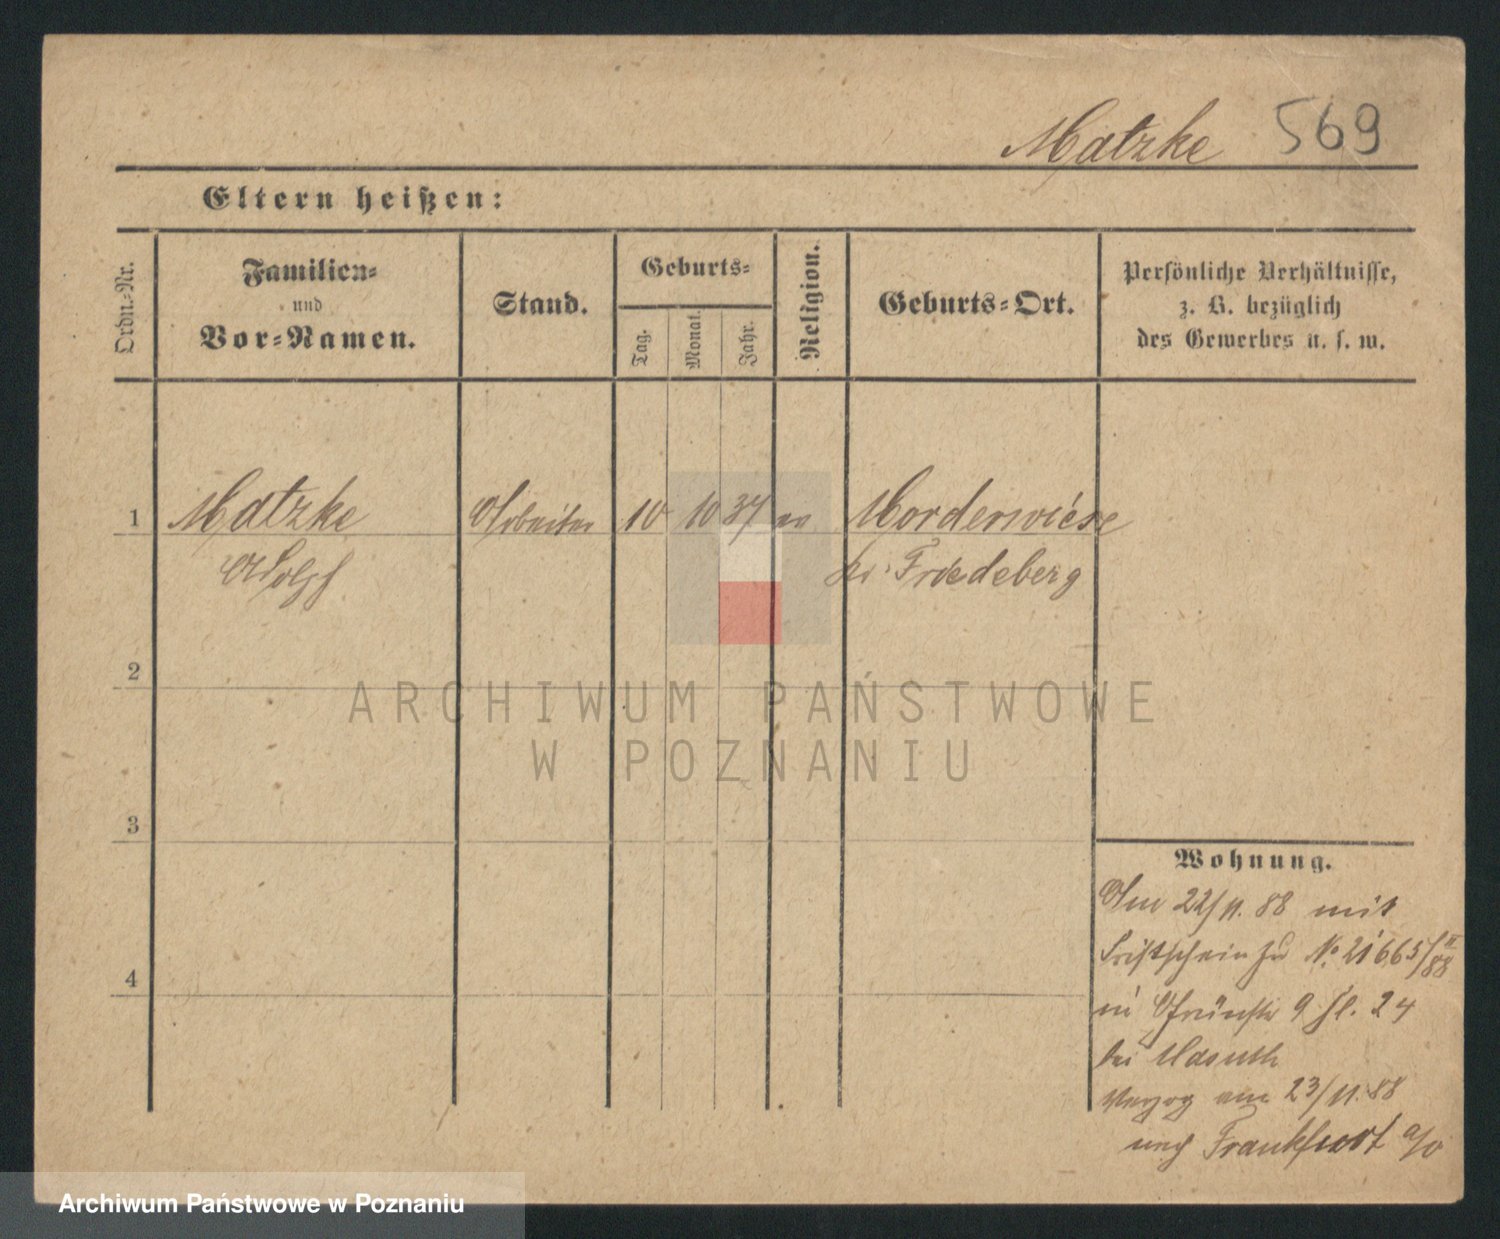 Matzke 569
Eltern heißen:
Ordn.-Nr.
Familien-
und
Vor-Namen.
Stand.
Geburts-
Tag.
Monat.
Jahr.
Religion.
Geburts-Ort.
Persönliche Verhältnisse,
z. B. bezüglich
des Gewerbes u. s. w.
1 Matzke Arbeiter 10 10 37 ev Morderwiese
Adolph bei Friedeberg
2
3
4
Wohnung.
Am 22/11. 88 mit
Fristschein zu No. 21665/88
in 9 24
bei
Verzog am 23/11. 88
nach Frankfurt a/O
ARCHIWUM PAŃSTWOWE
W POZNANIU
Archiwum Państwowe w Poznaniu